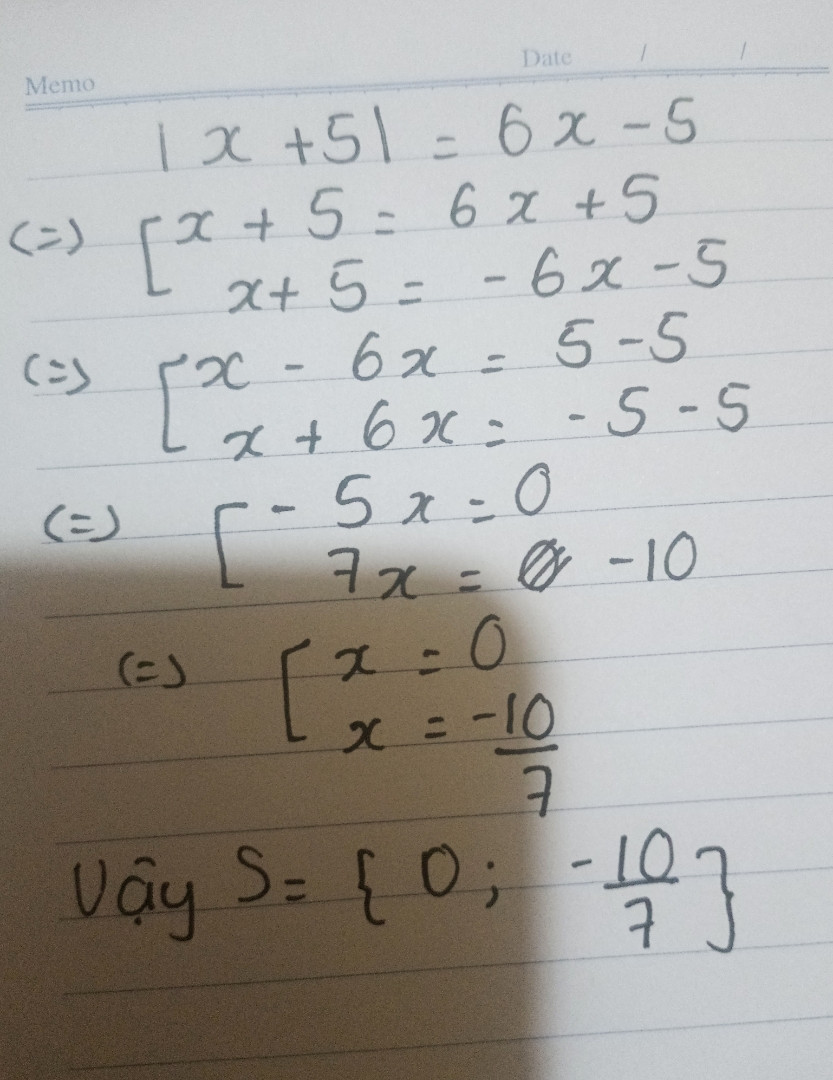 Memo Date / /
|x + 5| = 6x - 5
(=) [ x + 5 = 6x + 5
x + 5 = - 6x - 5
(=) [ x - 6x = 5 - 5
x + 6x = - 5 - 5
(=) [ - 5x = 0
7x = -10
(=) [ x = 0
x = -10/7
Vậy S = { 0 ; -10/7 }